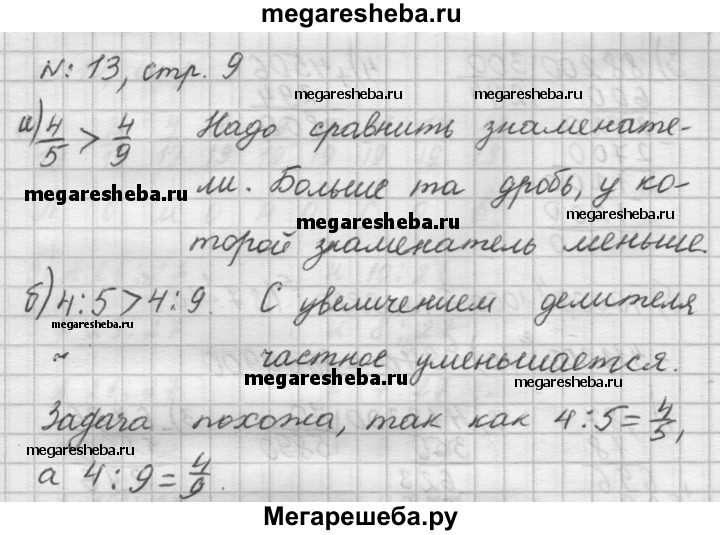 megaresheba.ru
№: 13, стр. 9
megaresheba.ru
megaresheba.ru
а) 4/5 > 4/9 Надо сравнить знаменате-
megaresheba.ru
ли. Больше та дробь, у ко-
megaresheba.ru
megaresheba.ru
торой знаменатель меньше.
б) 4:5>4:9. С увеличением делителя
megaresheba.ru
частное уменьшается.
megaresheba.ru
megaresheba.ru
Задача похожа, так как 4:5=4/5,
megaresheba.ru
megaresheba.ru
а 4:9=4/9.
Мегарешеба.ру